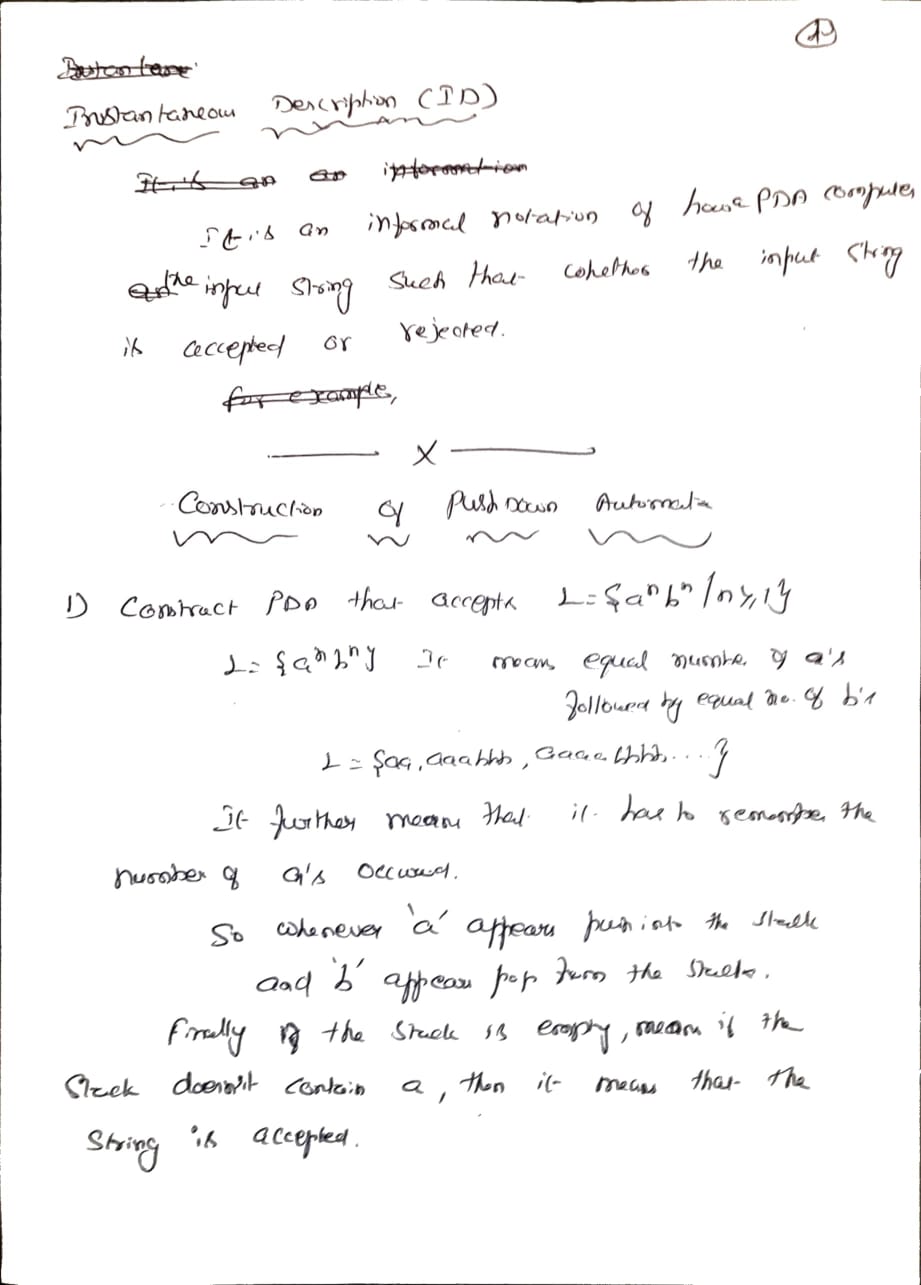 Instantaneous Description (ID)
It is an an information
It is an informal notation of how a PDA computes
the input string such that whether the input string
is accepted or rejected.
for example,
X
Construction of Push Down Automata
1) Construct PDA that accepts L={aⁿbⁿ/n≥1}
L={aⁿbⁿ} It means equal number of a's
followed by equal no. of b's
L = {aa, aaabbb, aaaabbbb....}
It further means that it has to remember the
number of a's occured.
So whenever 'a' appears push into the stack
and 'b' appears pop from the stack.
Finally if the stack is empty, means if the
Stack doesn't contain a, then it means that the
String is accepted.